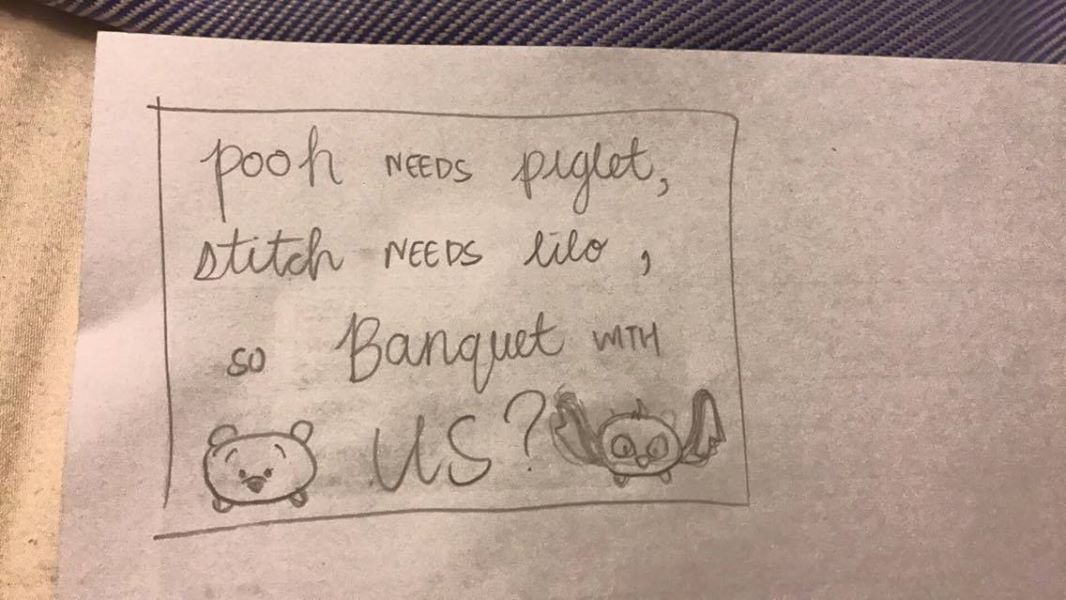 pooh NEEDS piglet,
stitch NEEDS lilo,
so Banquet WITH
US?